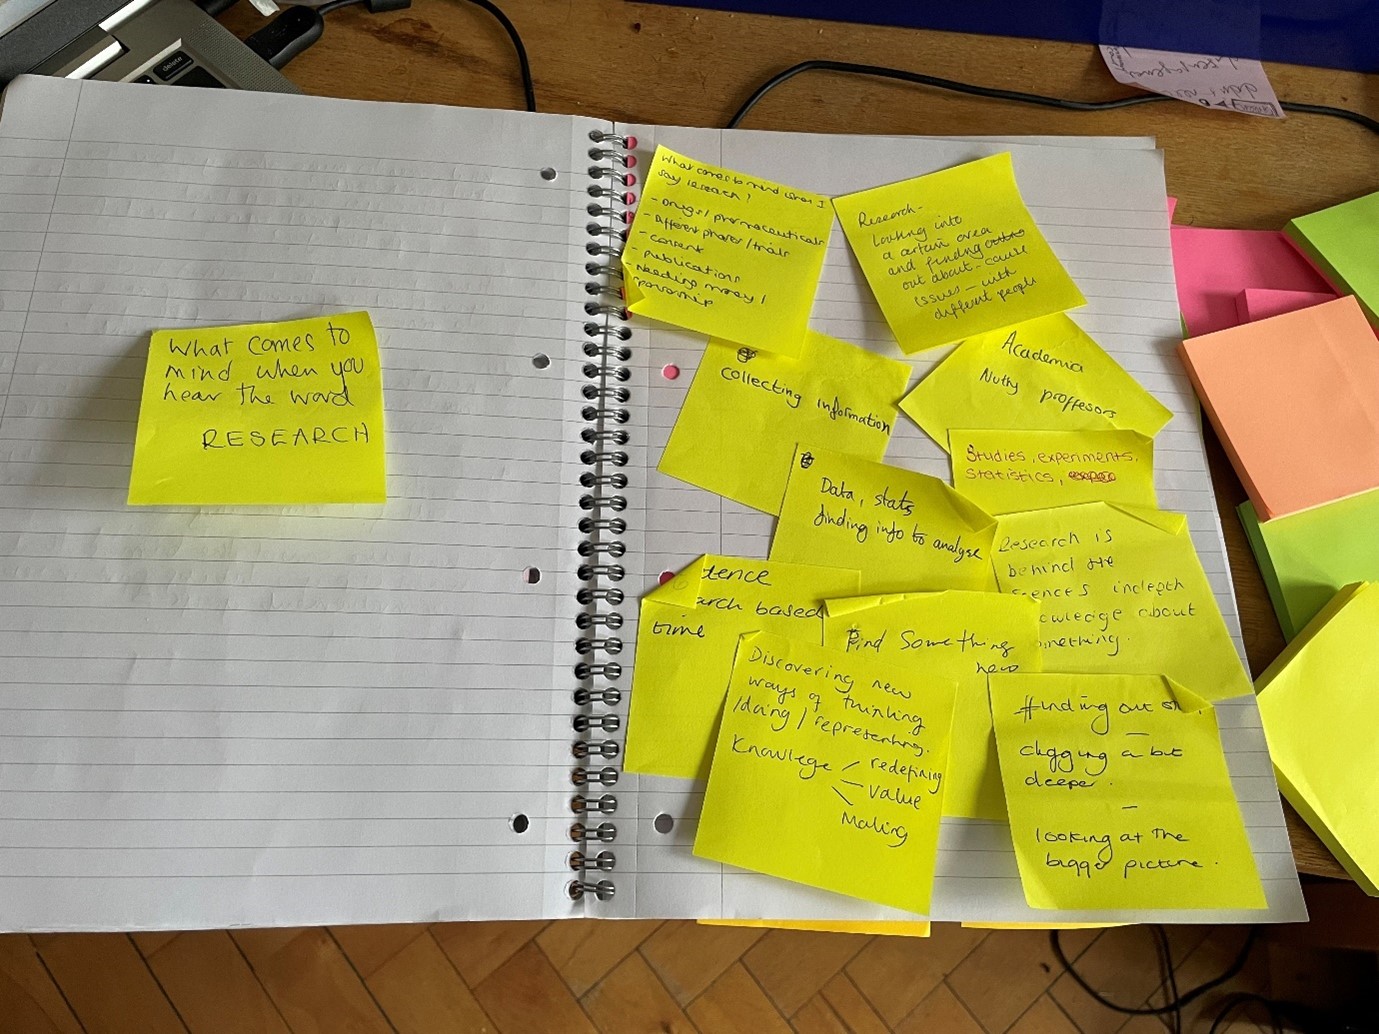 What comes to
mind when you
hear the word
RESEARCH
What comes to mind when I
say research?
- Drugs / pharmaceuticals
- Different phases / trials
- consent
- publications
- Needing money /
sponsorship
Research -
Looking into
a certain area
and finding
out about - cause
issues - with
different people
collecting information
Academia
Nutty proffesors
Studies, experiments,
statistics,
Data, stats
finding info to analyse
tence
arch based
time
Research is
behind the
indepth
owledge about
mething.
Find Something
new
Discovering new
ways of thinking
/doing / representing.
Knowlege / redefining
- value
\ Making
finding out
-
digging a bit
deeper.
-
looking at the
bigger picture.
delete